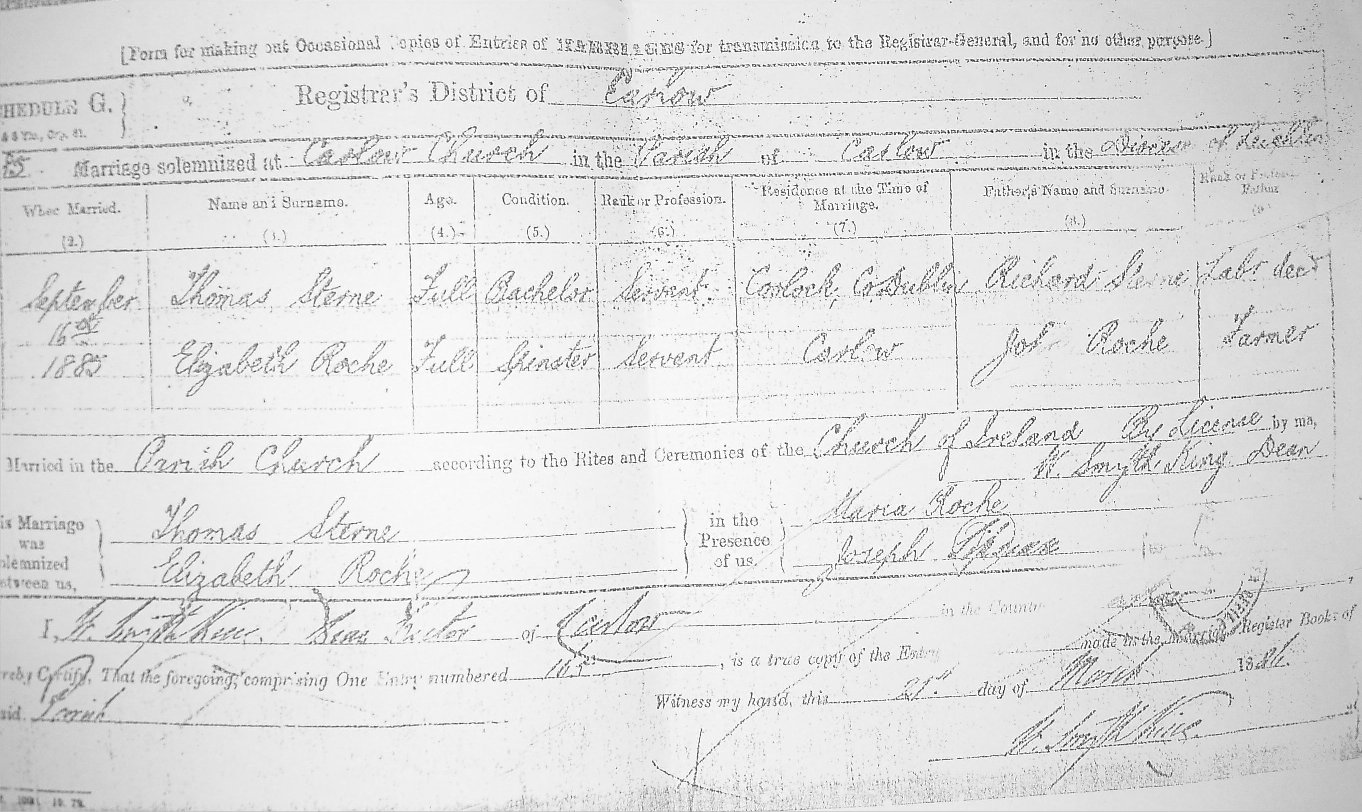 [Form for making out Occasional Copies of Entries of MARRIAGES for transmission to the Registrar-General, and for no other purpose.]
HEDULE G. Registrar's District of Carlow
Marriage solemnized at Carlow Church in the Parish of Carlow in the Diocese of Leighlin
When Married. Name and Surname. Age. Condition. Rank or Profession. Residence at the Time of Marriage. Father's Name and Surname. Rank or Profession Father
(2.) (3.) (4.) (5.) (6.) (7.) (8.) (9.)
September Thomas Sterne Full Bachelor Servent Coolock, Co Dublin Richard Sterne Labr decd
16th
1885 Elizabeth Roche Full Spinster Servent Carlow John Roche Farmer
Married in the Parish Church according to the Rites and Ceremonies of the Church of Ireland By License by me,
W. Smyth King Dean
is Marriage was olemnized etween us, Thomas Sterne in the Presence of us. Maria Roche
Elizabeth Roche Joseph
I, W. Smyth King. Dean Rector of Carlow in the County
reby Certify, That the foregoing, comprising One Entry numbered 165, is a true copy of the Entry made in the Marriage Register Books of
aid Parish Witness my hand, this 21st day of March 1886.
W. Smyth King.